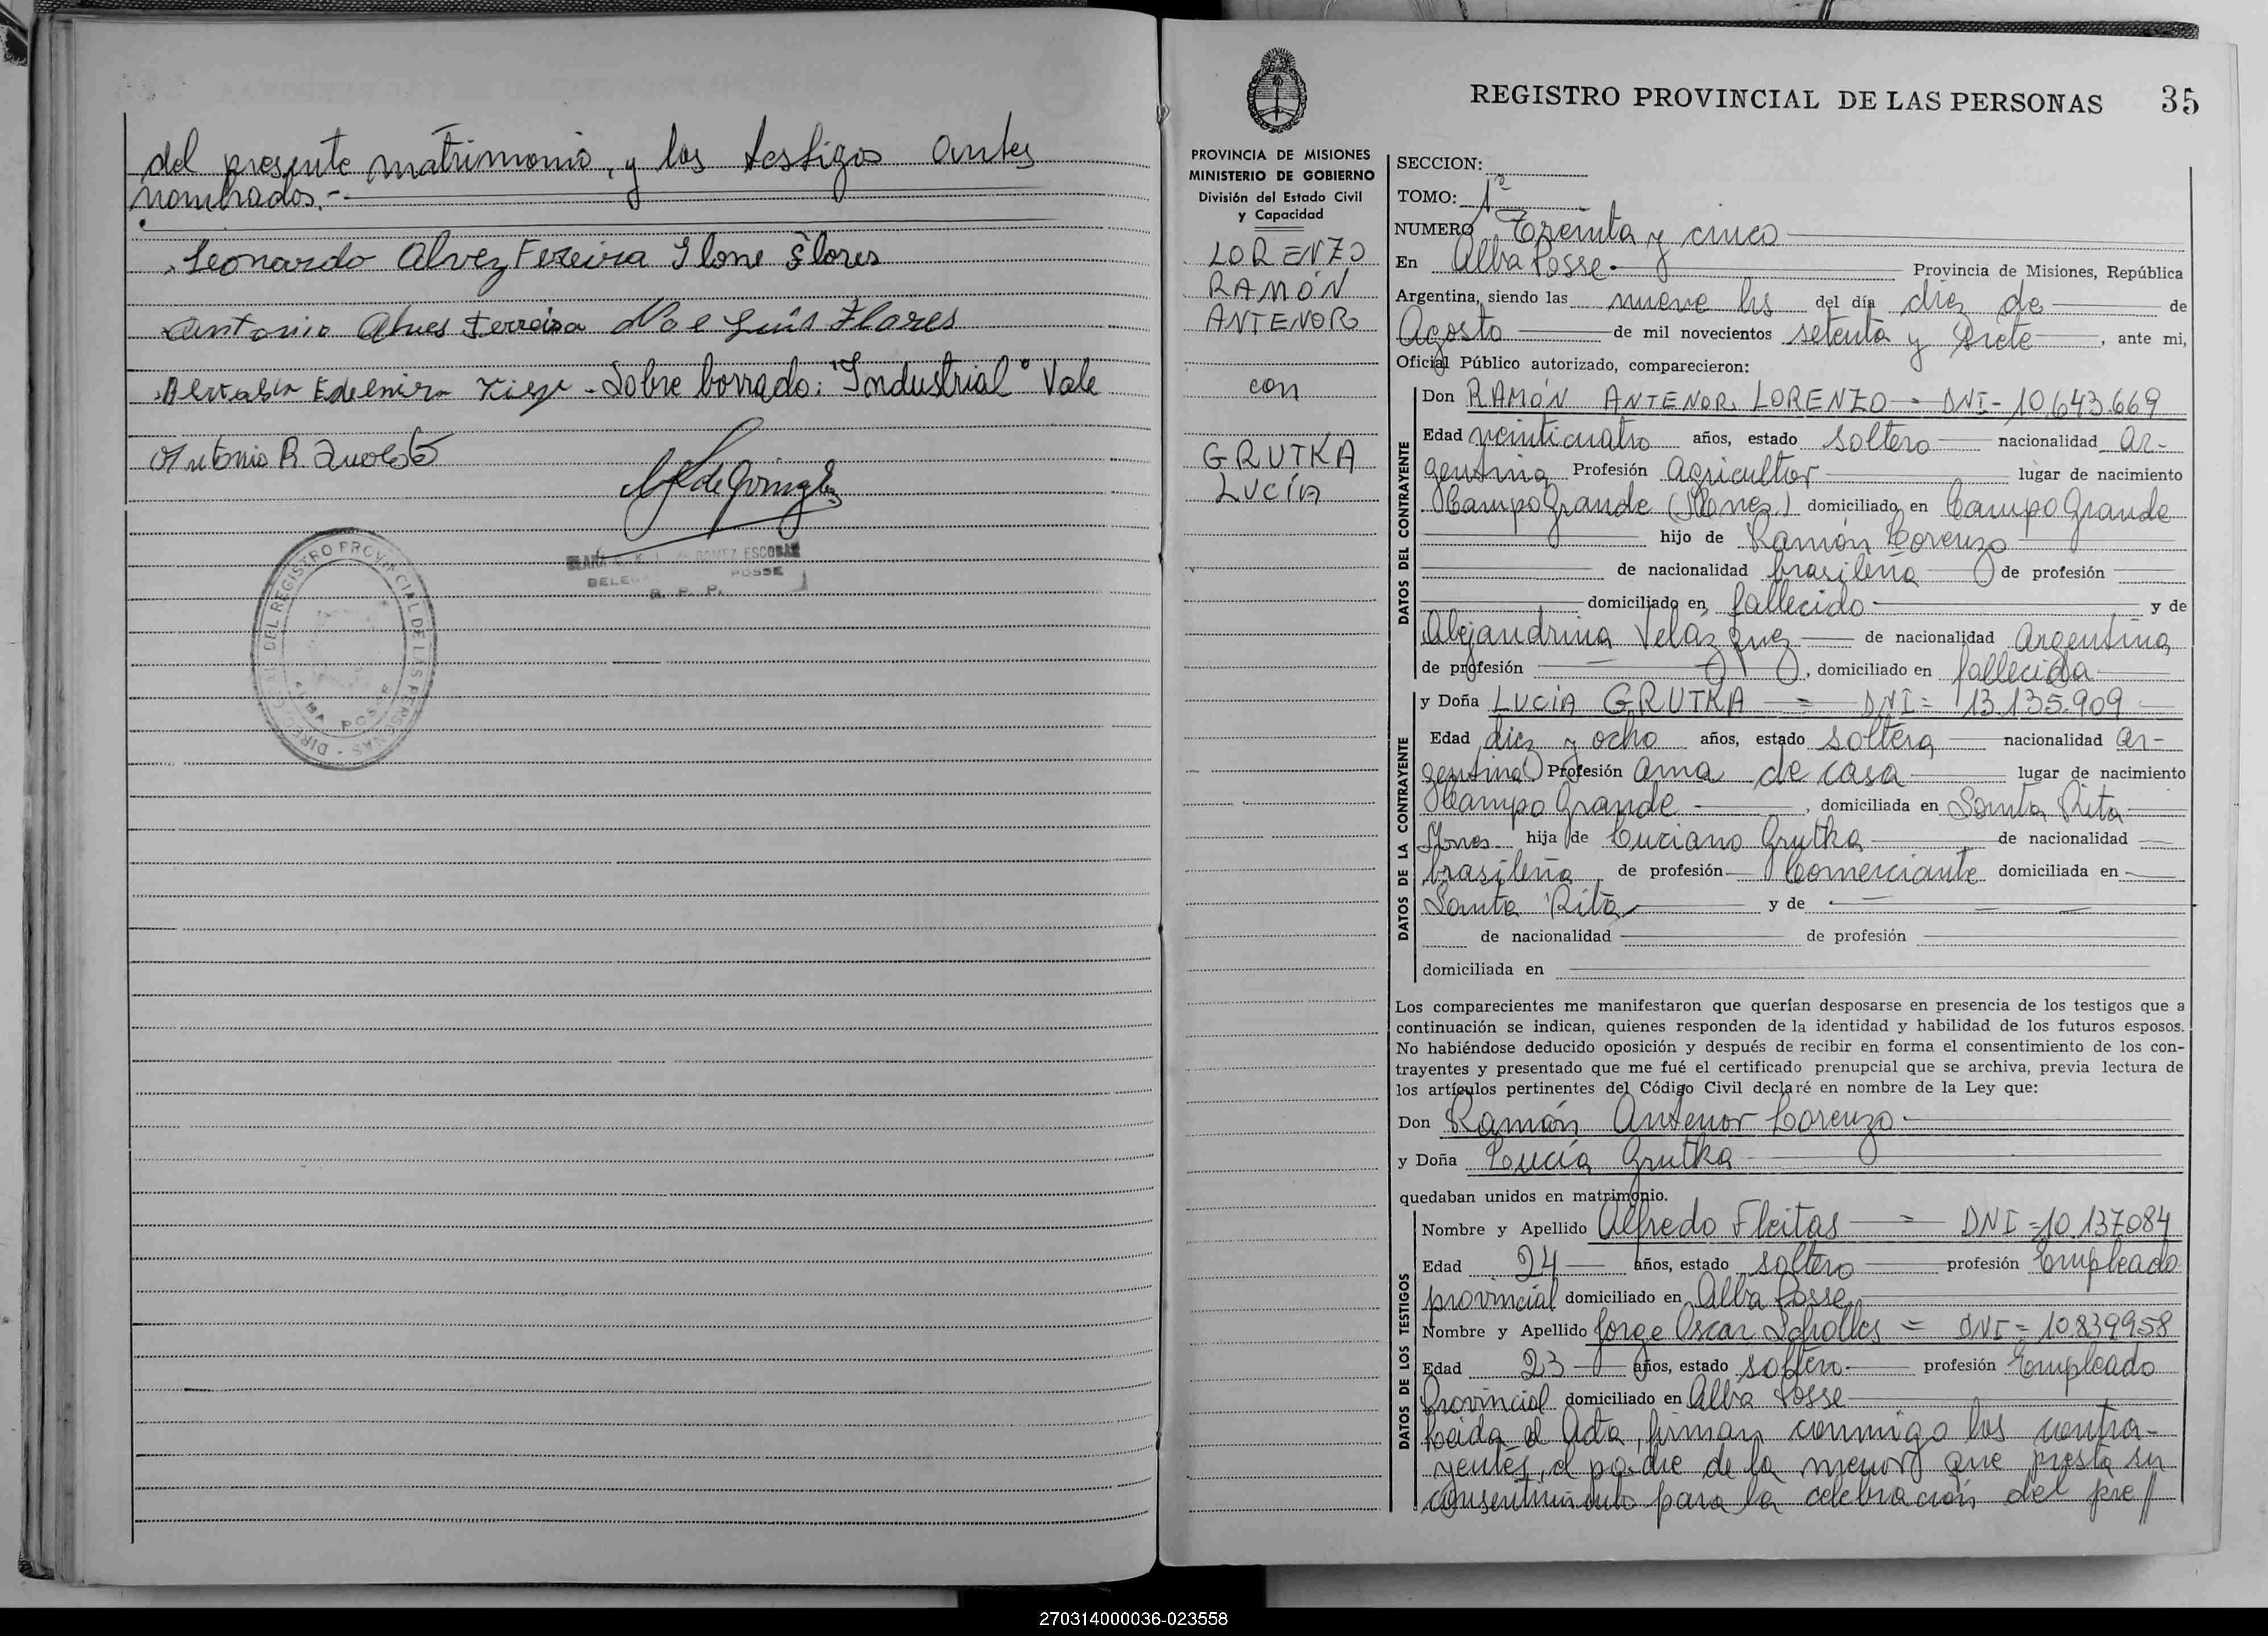 del presente matrimonio, y los testigos antes
nombrados.-
Leonardo Alvez Fereira Ilone Flores
Antonio Alves Ferreira Noe Luis Flores
Edelmira - Sobre borrado: "Industrial" Vale
Antonio R.
GOMEZ ESCOBAR
POSSE
R. P. P.
DEL REGISTRO PROVINCIAL DE LAS PERSONAS - DIREC
ALBA POSSE
REGISTRO PROVINCIAL DE LAS PERSONAS 35
PROVINCIA DE MISIONES
MINISTERIO DE GOBIERNO
División del Estado Civil
y Capacidad
LORENZO
RAMÓN
ANTENOR
con
GRUTKA
LUCÍA
SECCION:
TOMO: 1º
NUMERO Treinta y cinco
En Alba Posse.- Provincia de Misiones, República
Argentina, siendo las nueve hs del día diez de de
Agosto de mil novecientos setenta y siete, ante mi,
Oficial Público autorizado, comparecieron:
DATOS DEL CONTRAYENTE
Don RAMÓN ANTENOR LORENZO - DNI- 10.643.669
Edad veinticuatro años, estado soltero nacionalidad ar-
gentina Profesión Agricultor lugar de nacimiento
Campo Grande (Mnes.) domiciliado en Campo Grande
hijo de Ramón Lorenzo
de nacionalidad brasileña de profesión
domiciliado en fallecido y de
Alejandrina Velázquez de nacionalidad Argentina
de profesión , domiciliado en fallecida
DATOS DE LA CONTRAYENTE
y Doña LUCIA GRUTKA = DNI= 13.135.909
Edad diez y ocho años, estado soltera nacionalidad ar-
gentina Profesión ama de casa lugar de nacimiento
Campo Grande , domiciliada en Santa Rita
Mnes. hija de Luciano Grutka de nacionalidad
brasileña de profesión Comerciante domiciliada en
Santa Rita y de
de nacionalidad de profesión
domiciliada en
Los comparecientes me manifestaron que querían desposarse en presencia de los testigos que a
continuación se indican, quienes responden de la identidad y habilidad de los futuros esposos.
No habiéndose deducido oposición y después de recibir en forma el consentimiento de los con-
trayentes y presentado que me fué el certificado prenupcial que se archiva, previa lectura de
los artículos pertinentes del Código Civil declaré en nombre de la Ley que:
Don Ramón Antenor Lorenzo
y Doña Lucía Grutka
quedaban unidos en matrimonio.
DATOS DE LOS TESTIGOS
Nombre y Apellido Alfredo Fleitas = DNI=10.137.084
Edad 24 años, estado soltero profesión Empleado
provincial domiciliado en Alba Posse
Nombre y Apellido Jorge Oscar Scholles = DNI= 10.839.958
Edad 23 años, estado soltero profesión Empleado
Provincial domiciliado en Alba Posse
Leída el Acta, firman conmigo los contra-
yentes, el padre de la menor que presta su
consentimiento para la celebración del pre//
270314000036-023558